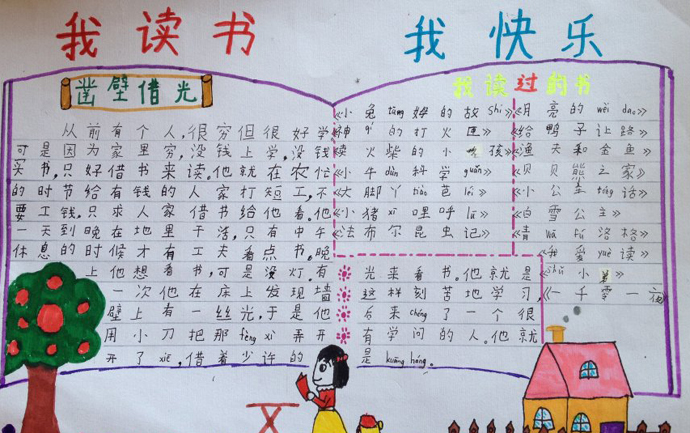 我读书
我快乐
凿壁借光
从前有个人,很穷但很好学
可是因为家里穷,没钱上学,没钱
买书,只好借书来读。他就在农忙
的时节给有钱的人家打短工,不
要工钱,只求人家借书给他看。他
一天到晚在地里干活,只有中午
休息的时候才有工夫看点书。晚
上他想看书,可是没灯有
一次他在床上发现墙
壁上有一丝光,于是他
用小刀把那fèng xì弄开
开了xiē,借着少许的
光来看书。他就是
这样刻苦地学习,
后来chéng了一个很
有学问的人。他就
是kuāng héng.
我读过的书
《小兔tāng姆的故shi》
《神qí的打火匣》
《卖火柴的小女孩》
《小牛dùn科学guǎn》
《大脚丫tiào芭lěi》
《小猪xī哩呼lū》
《法布尔昆虫记》
《月亮的wèi dao》
《给鸭子让路》
《渔夫和金鱼》
《贝贝熊之家》
《小公主tóng话》
《白雪公主》
《青wā fú洛格》
《我爱yuè读》
《shū小弟》
《一千零一夜》